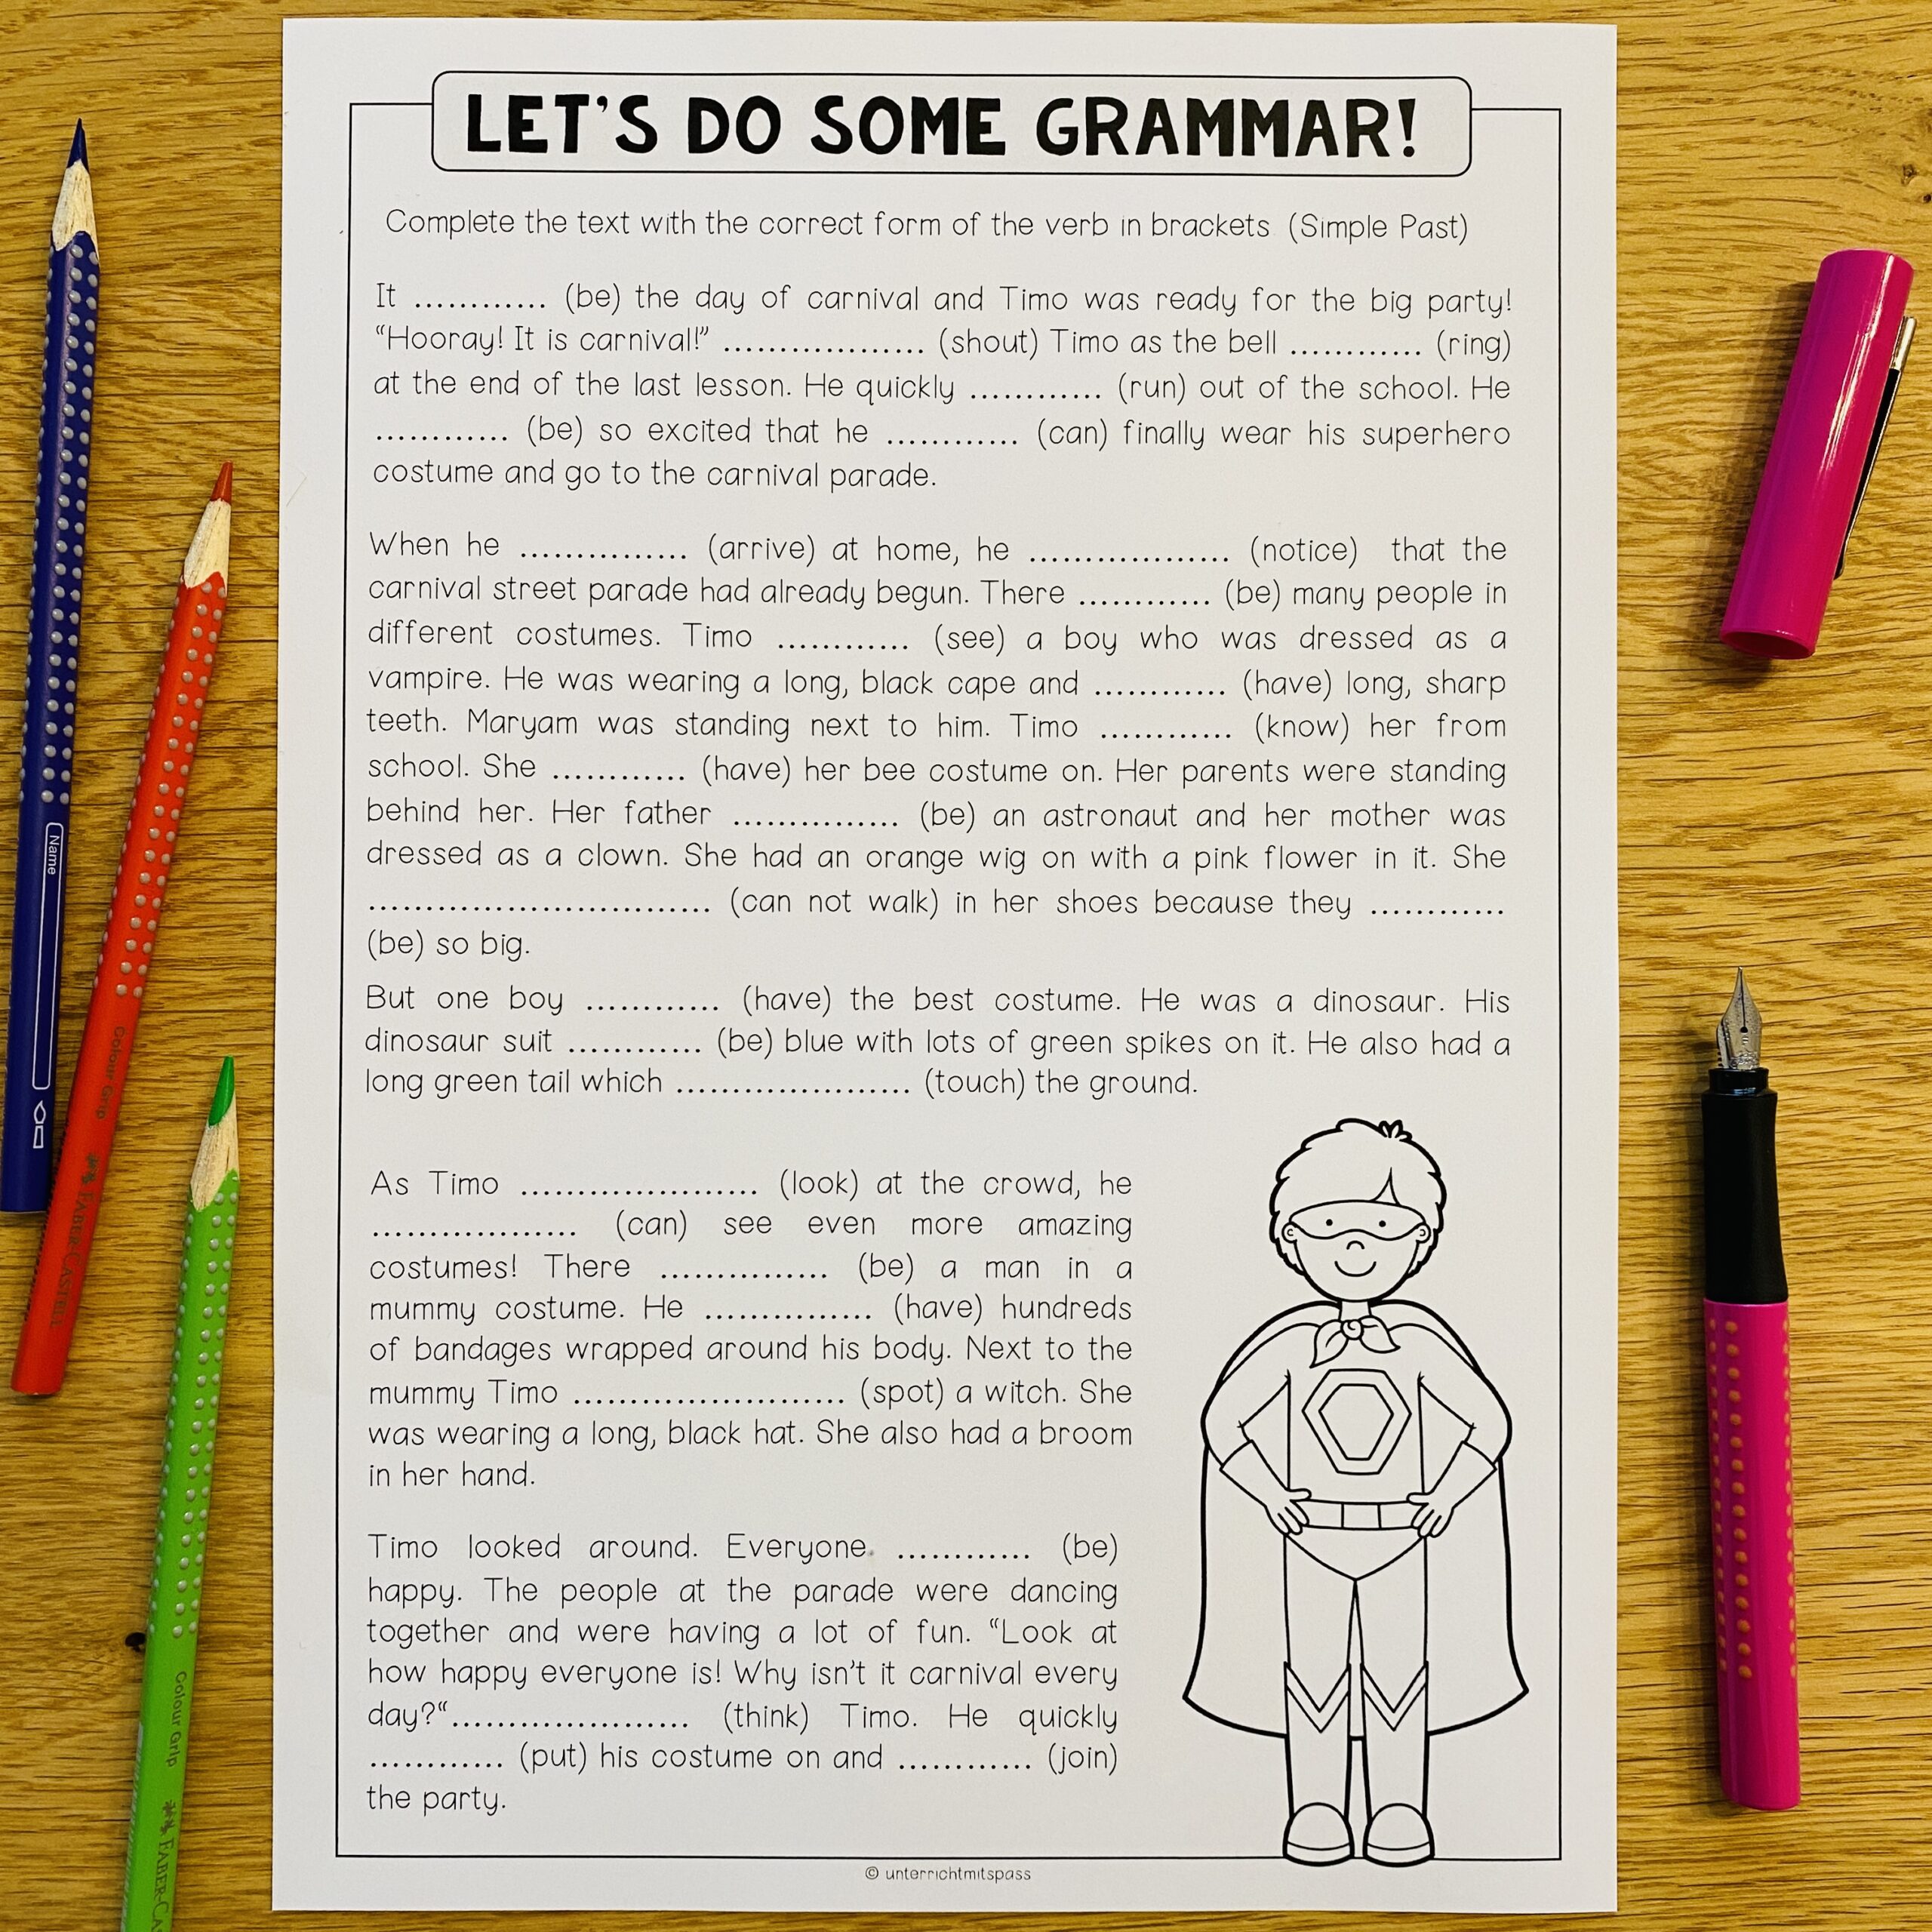 LET'S DO SOME GRAMMAR!
Complete the text with the correct form of the verb in brackets (Simple Past)
It ............ (be) the day of carnival and Timo was ready for the big party!
“Hooray! It is carnival!” .................. (shout) Timo as the bell ............ (ring)
at the end of the last lesson. He quickly ............ (run) out of the school. He
............ (be) so excited that he ............ (can) finally wear his superhero
costume and go to the carnival parade.
When he ............... (arrive) at home, he .................. (notice) that the
carnival street parade had already begun. There ............ (be) many people in
different costumes. Timo ............ (see) a boy who was dressed as a
vampire. He was wearing a long, black cape and ............ (have) long, sharp
teeth. Maryam was standing next to him. Timo ............ (know) her from
school. She ............ (have) her bee costume on. Her parents were standing
behind her. Her father ............... (be) an astronaut and her mother was
dressed as a clown. She had an orange wig on with a pink flower in it. She
.............................. (can not walk) in her shoes because they ............
(be) so big.
But one boy ............ (have) the best costume. He was a dinosaur. His
dinosaur suit ............ (be) blue with lots of green spikes on it. He also had a
long green tail which ..................... (touch) the ground.
As Timo ..................... (look) at the crowd, he
.................. (can) see even more amazing
costumes! There ............... (be) a man in a
mummy costume. He ............... (have) hundreds
of bandages wrapped around his body. Next to the
mummy Timo ........................ (spot) a witch. She
was wearing a long, black hat. She also had a broom
in her hand.
Timo looked around. Everyone ............ (be)
happy. The people at the parade were dancing
together and were having a lot of fun. “Look at
how happy everyone is! Why isn't it carnival every
day?“..................... (think) Timo. He quickly
............ (put) his costume on and ............ (join)
the party.
© unterrichtmitspass
Name
Colour Grip
FABER-CASTELL
Colour Grip